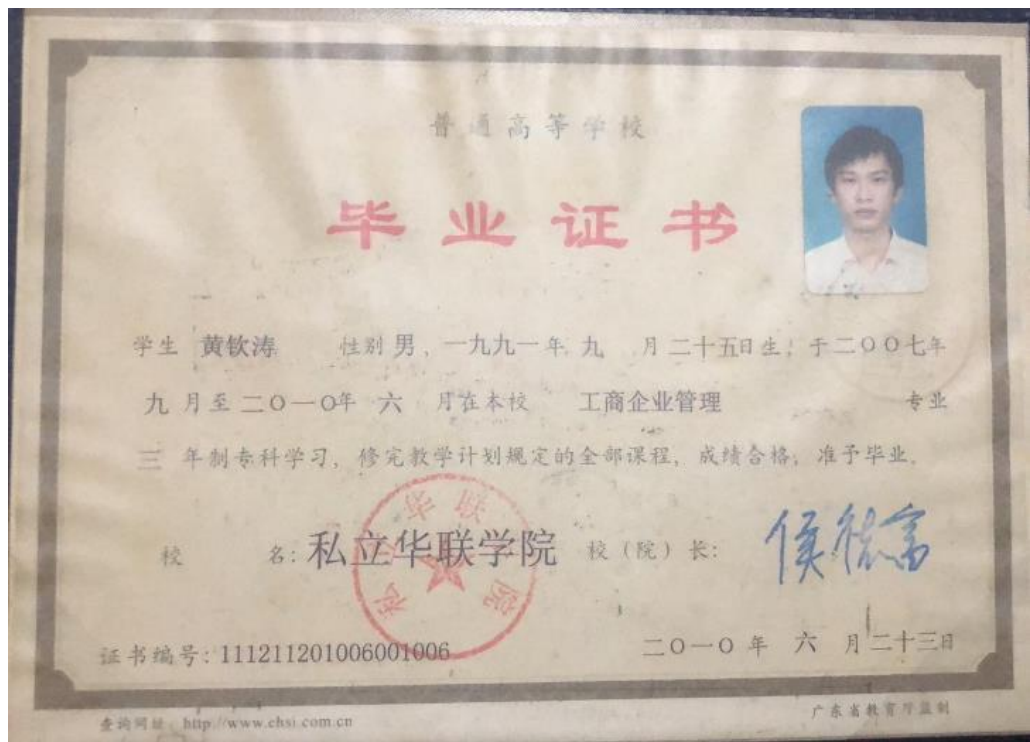 普通高等学校
毕业证书
学生 黄钦涛 性别 男，一九九一年 九 月二十五日生，于二〇〇七年
九 月至二〇一〇年 六 月在本校 工商企业管理 专业
三 年制专科学习，修完教学计划规定的全部课程，成绩合格，准予毕业。
校 名：私立华联学院 校（院）长：侯德富
私立华联学院
证书编号：111211201006001006 二〇一〇年 六 月二十三日
查询网址：http://www.chsi.com.cn 广东省教育厅监制